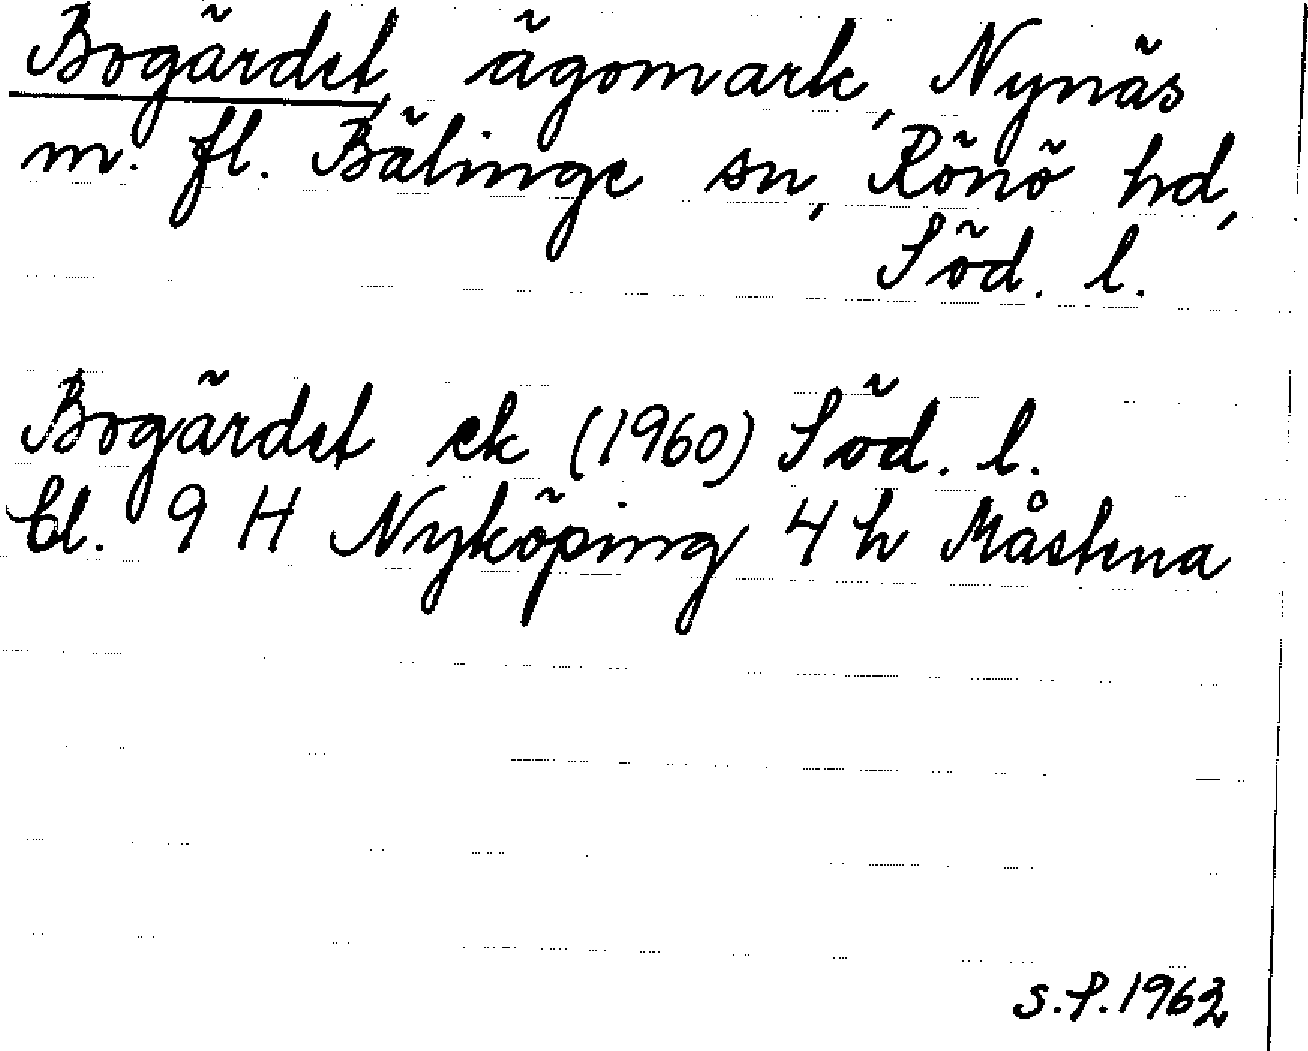 Bogärdet, ägomark, Nynäs
m. fl. Bälinge sn, Rönö hd,
Söd. l.
Bogärdet ek (1960) Söd. l.
Bl. 9 H Nyköping 4 h Måstena
S.P. 1962